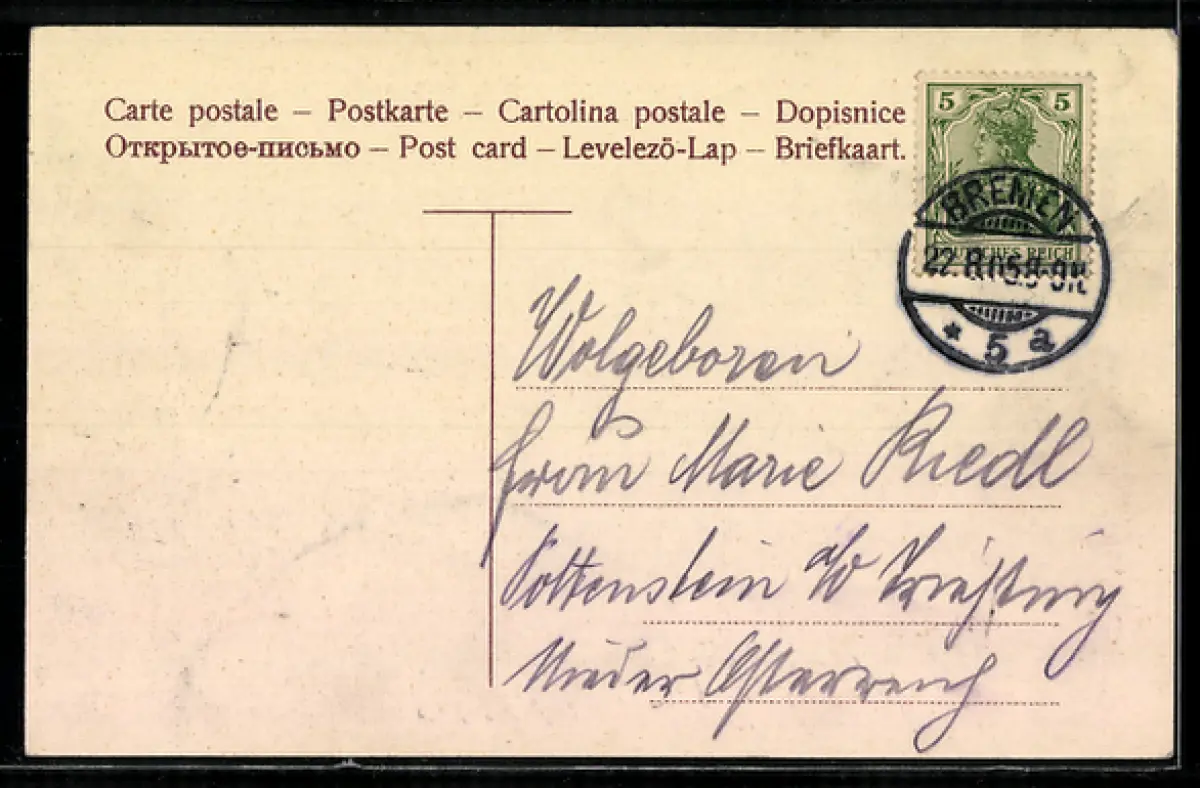 Carte postale – Postkarte – Cartolina postale – Dopisnice
Открытое-письмо – Post card – Levelezö-Lap – Briefkaart.
5 5
DEUTSCHES REICH
BREMEN
22.8.05.8-9N.
* 5 a
Wolgeboren
Frau Marie Riedl
Pottenstein a/d Triesting
Nieder Österreich